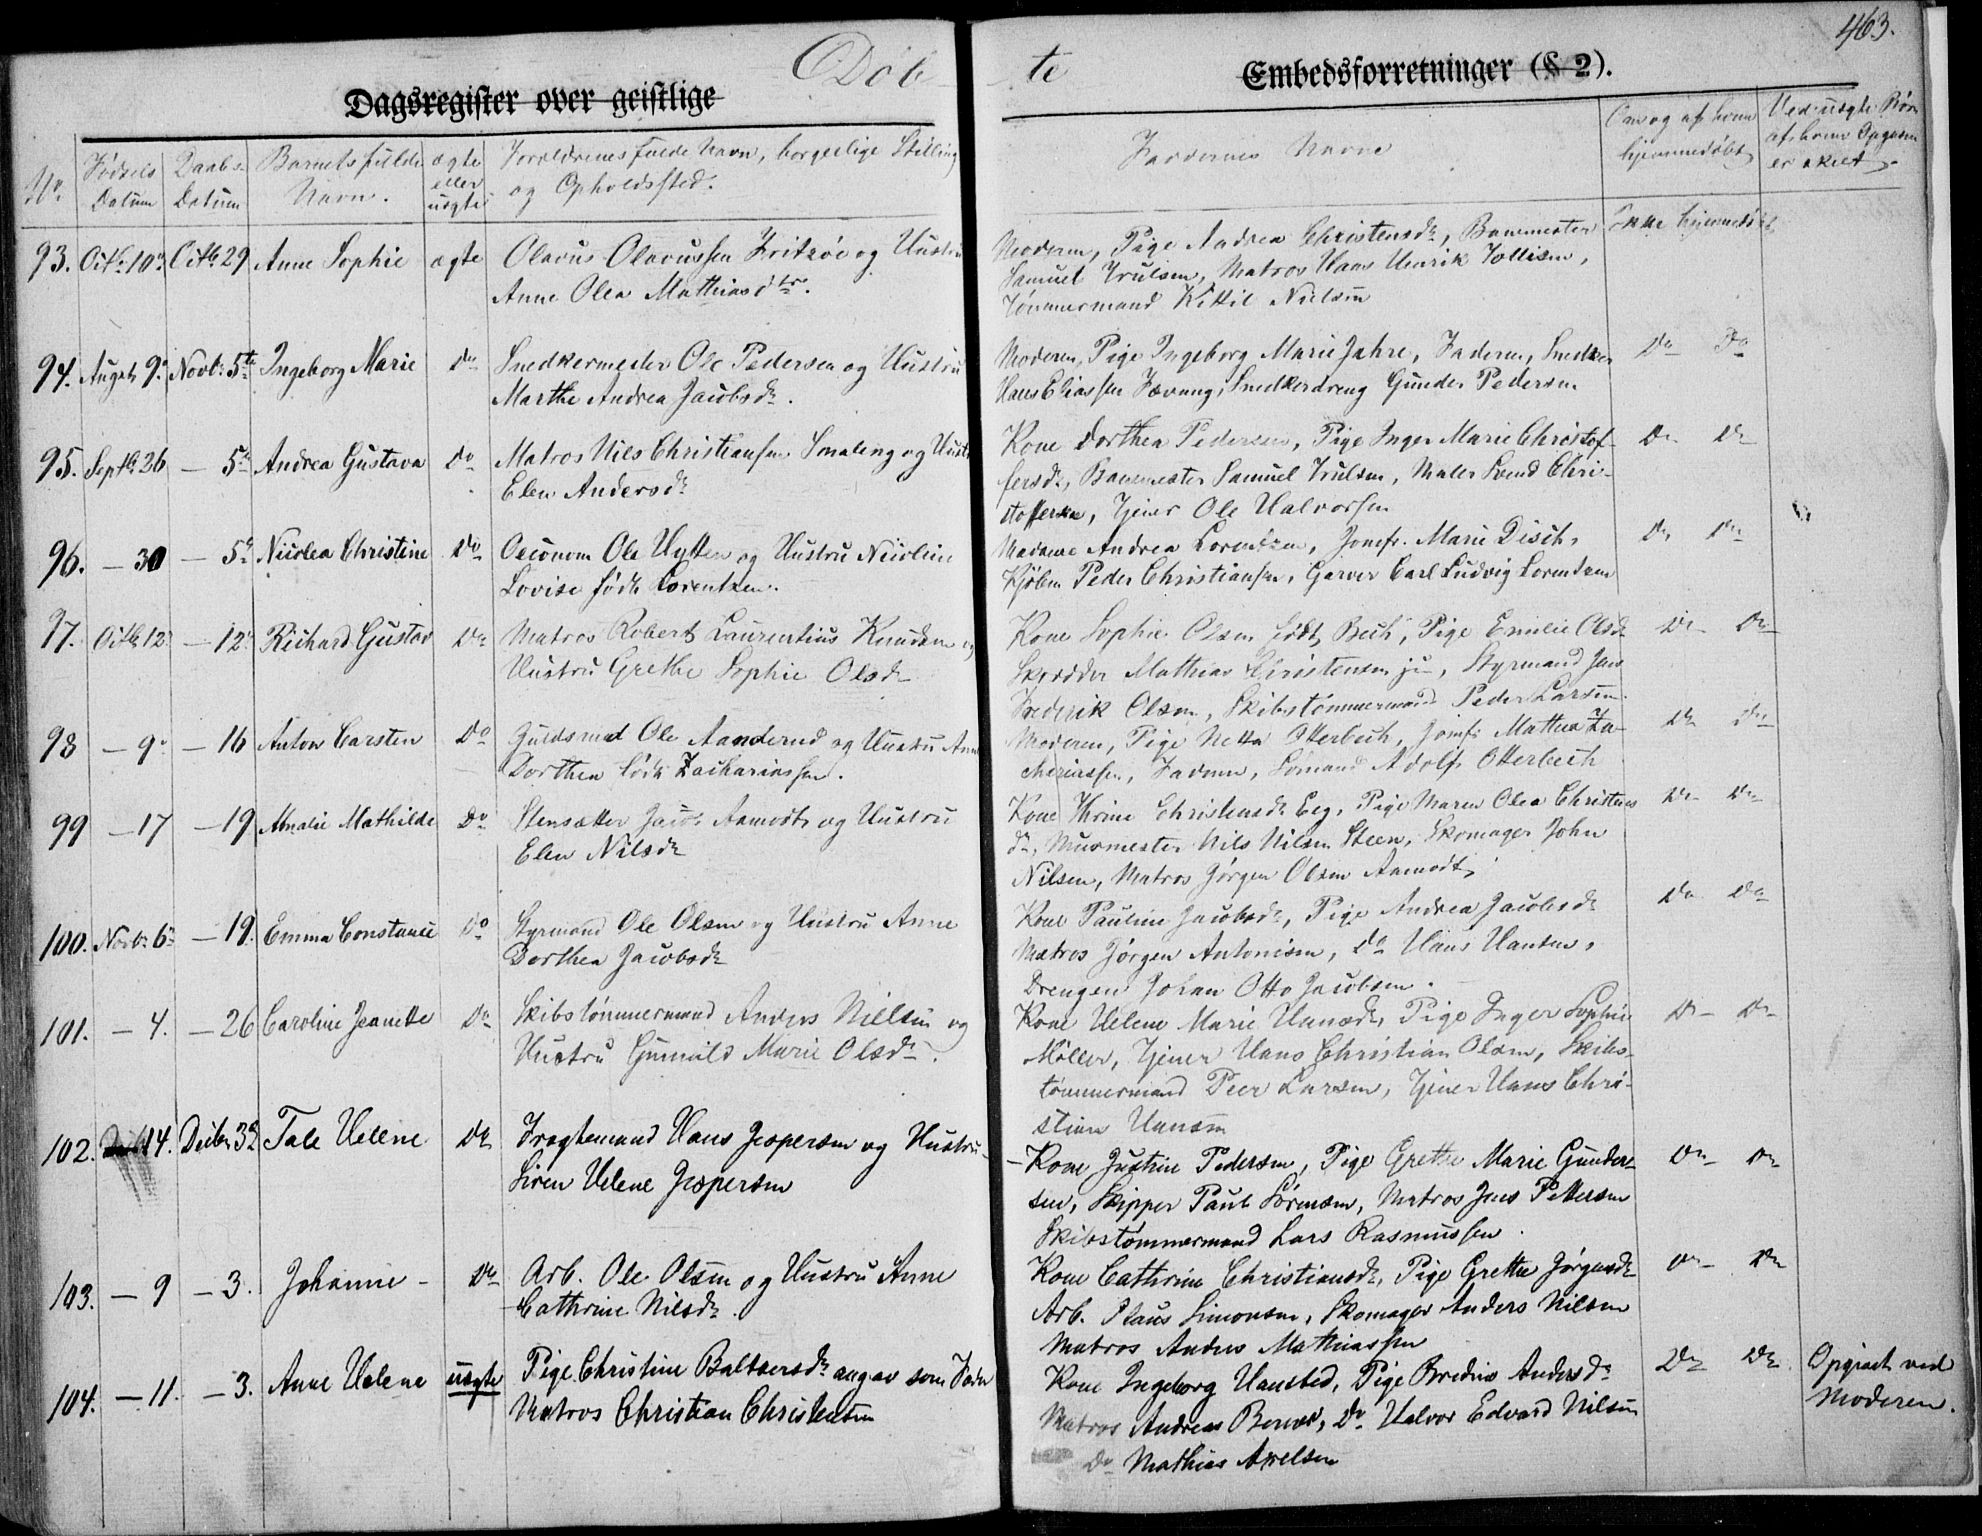 463.
Døb te
Dagsregister over geistlige Embedsforretninger (§ 2).
No.
Fødsels Datum
Daabs Datum
Barnets fulde Navn.
ægte eller uægte
Forældrenes fulde Navn, borgerlige Stilling og Opholdssted.
Faddernes Navne
Om og af hvem hjemmedøbt
Ved uægte Børn af hvem Opgaven er skeet.
93. Octb. 10. Octb. 29 Anne Sophie ægte Olavus Olavussen Fritzøe og Hustru
Anne Olea Mathiasdtr.
Moderen, Pige Andrea Christensdr, Banemester
Samuel Trulsen, Matros Hans Henrik Tollisen,
Tømmermand Kittil Nielsen
Ikke hjemmedøbt
94. August 9. Novb. 5te Ingeborg Marie Do Snedkermester Ole Pedersen og Hustru
Marthe Andrea Jacobsdr.
Moderen, Pige Ingeborg Marie Jahre, Faderen, Snedker
Hans Eliassen Fevang, Snedkerdreng Gunder Pedersen
Do Do
95. Septb. 26 — 5te Andrea Gustava Do Matros Nils Christiansen Smaleng og Hustr.
Elen Andersdr
Kone Dorthea Pedersen, Pige Inger Marie Christof-
fersdr, Banemester Samuel Trulsen, Maler Svend Chri-
stoffersen, Tjener Ole Halvorsen
Do Do
96. — 30 — 5te Nicolea Christine Do Oeconom Ole Hytten og Hustru Nicoline
Lovise født Lorentzen.
Madame Andrea Lorentzen, Jomfr. Marie Disch,
Kjøbm Peder Christiansen, Garver Carl Ludvig Lorentzen
Do Do
97. Octb. 12. — 12. Richard Gustav Do Matros Robert Laurentius Knudsen og
Hustru Grethe Sophie Olsdr
Kone Sophie Olsen født Bech, Pige Emilie Olsdr
Skrædder Mathias Christensen jun, Styrmand Jens
Frederik Olsen, Skibstømmermand Peder Larsen.
Do Do
98 — 9. — 16 Anton Carsten Do Guldsmed Ole Aanderud og Hustru Anne
Dorthea født Zachariassen.
Moderen, Pige Netta Otterbech, Jomfr Mathea Za-
chariassen, Faderen, Sømand Adolf Otterbech
Do Do
99 — 17 — 19 Amalie Mathilde Do Stensætter Jacob Aamodt og Hustru
Elen Nilsdr
Kone Thrine Christensdr Eeg, Pige Maren Olea Christens
dr, Murmester Nils Nilsen Steen, Skomager John
Nilsen, Matros Jørgen Olsen Aamodt,
Do Do
100. Novb. 6. — 19. Emma Constance Do Styrmand Ole Olsen og Hustru Anne
Dorthea Jacobsdr
Kone Pauline Jacobsdr, Pige Andrea Jacobsdr
Matros Jørgen Antonisen, Do Hans Hansen,
Drengen Johan Otto Jacobsen.
Do Do
101. — 4. — 26 Caroline Jeanette Do Skibstømmermand Anders Nielsen og
Hustru Gunnild Marie Olsdr.
Kone Helene Marie Hansdr, Pige Inger Sophie
Møller, Tjener Hans Christian Olsen, Skibs-
tømmermand Peer Larsen, Tjener Hans Chri-
stian Hansen
Do Do
102. 14. Decbr 3die Tale Helene Do Fragtemand Hans Jespersen og Hustru
Siren Helene Jespersen
Kone Justine Pedersen, Pige Grethe Marie Gunder-
sen, Skipper Paul Sørensen, Matros Jens Pettersen
Skibstømmermand Lars Rasmussen.
Do Do
103. — 9 — 3. Johanne – Do Arb. Ole Olsen og Hustru Anne
Cathrine Nilsdr.
Kone Cathrine Christiansdr, Pige Grethe Jørgensdr
Arb. Claus Simonsen, Skomager Anders Nilsen
Matros Anders Mathiassen
Do Do
104. — 11. — 3. Anne Helene uægte Pige Christine Baltzersdr angav som Fader
Matros Christian Christensen
Kone Ingeborg Hansted, Pige Bredine Andersdr
Matros Andreas Berner, Do Halvor Edvard Nilsen
Do Mathias Axelsen
Do Do Opgivet ved
Moderen.